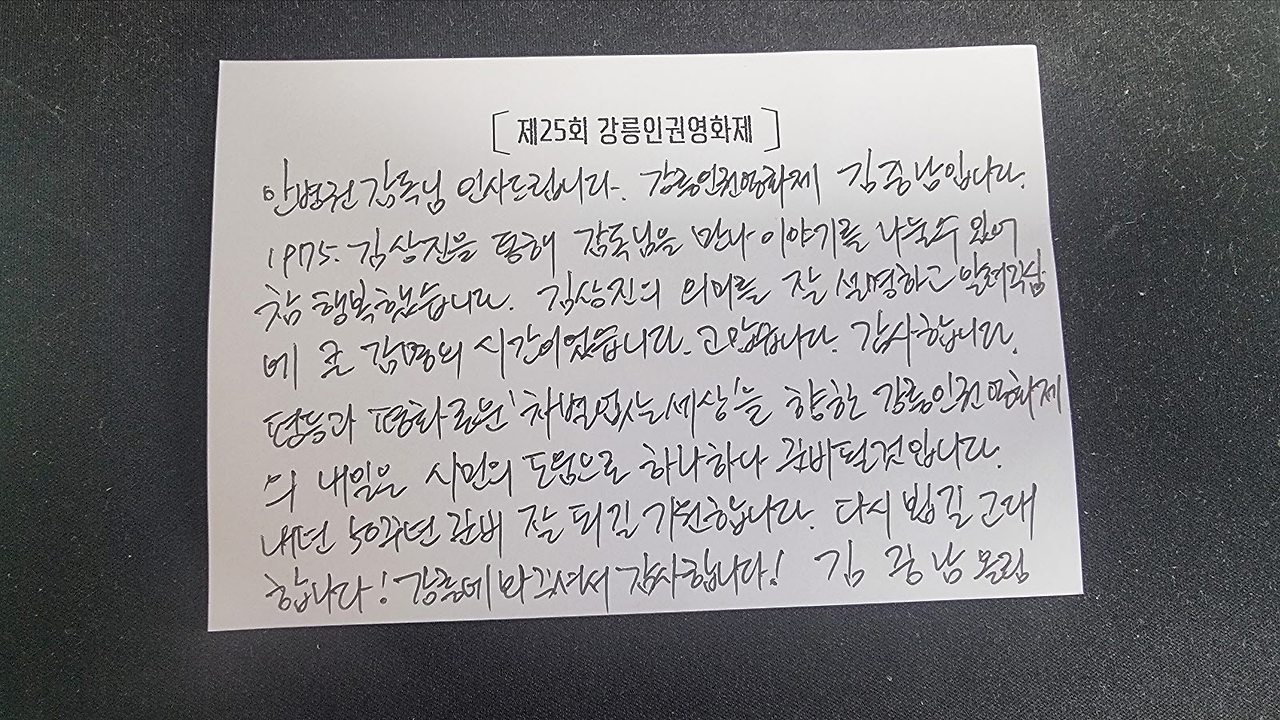 [ 제25회 강릉인권영화제 ]
안병권 감독님 인사드립니다. 강릉인권영화제 김중남입니다.
1975. 김상진을 통해 감독님을 만나 이야기를 나눌수 있어
참 행복했습니다. 김상진의 의미를 잘 설명하고 알려주심
에 큰 감명의 시간이었습니다. 고맙습니다. 감사합니다.
평등과 평화로운 '차별없는세상'을 향한 강릉인권영화제
의 내일은 시민의 도움으로 하나하나 준비될것입니다.
내년 50주년 준비 잘 되길 기원합니다. 다시 뵙길 고대
합니다! 강릉에 와주셔서 감사합니다! 김중남 올림